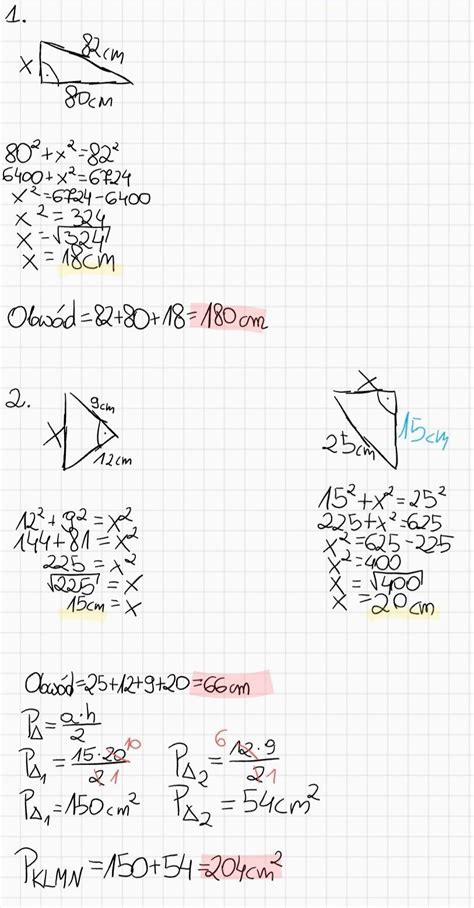 1.
82cm
x
80cm
80²+x²=82²
6400+x²=6724
x²=6724-6400
x²=324
x=√324
x=18cm
Obwód=82+80+18=180cm
2.
9cm
x
12cm
12²+9²=x²
144+81=x²
225=x²
√225=x
15cm=x
x
15cm
25cm
15²+x²=25²
225+x²=625
x²=625-225
x²=400
x=√400
x=20cm
Obwód=25+12+9+20=66cm
P△=a·h/2
P△₁=15·20/2 10 1
P△₂=12·9/2 6 1
P△₁=150cm²
P△₂=54cm²
PKLMN=150+54=204cm²